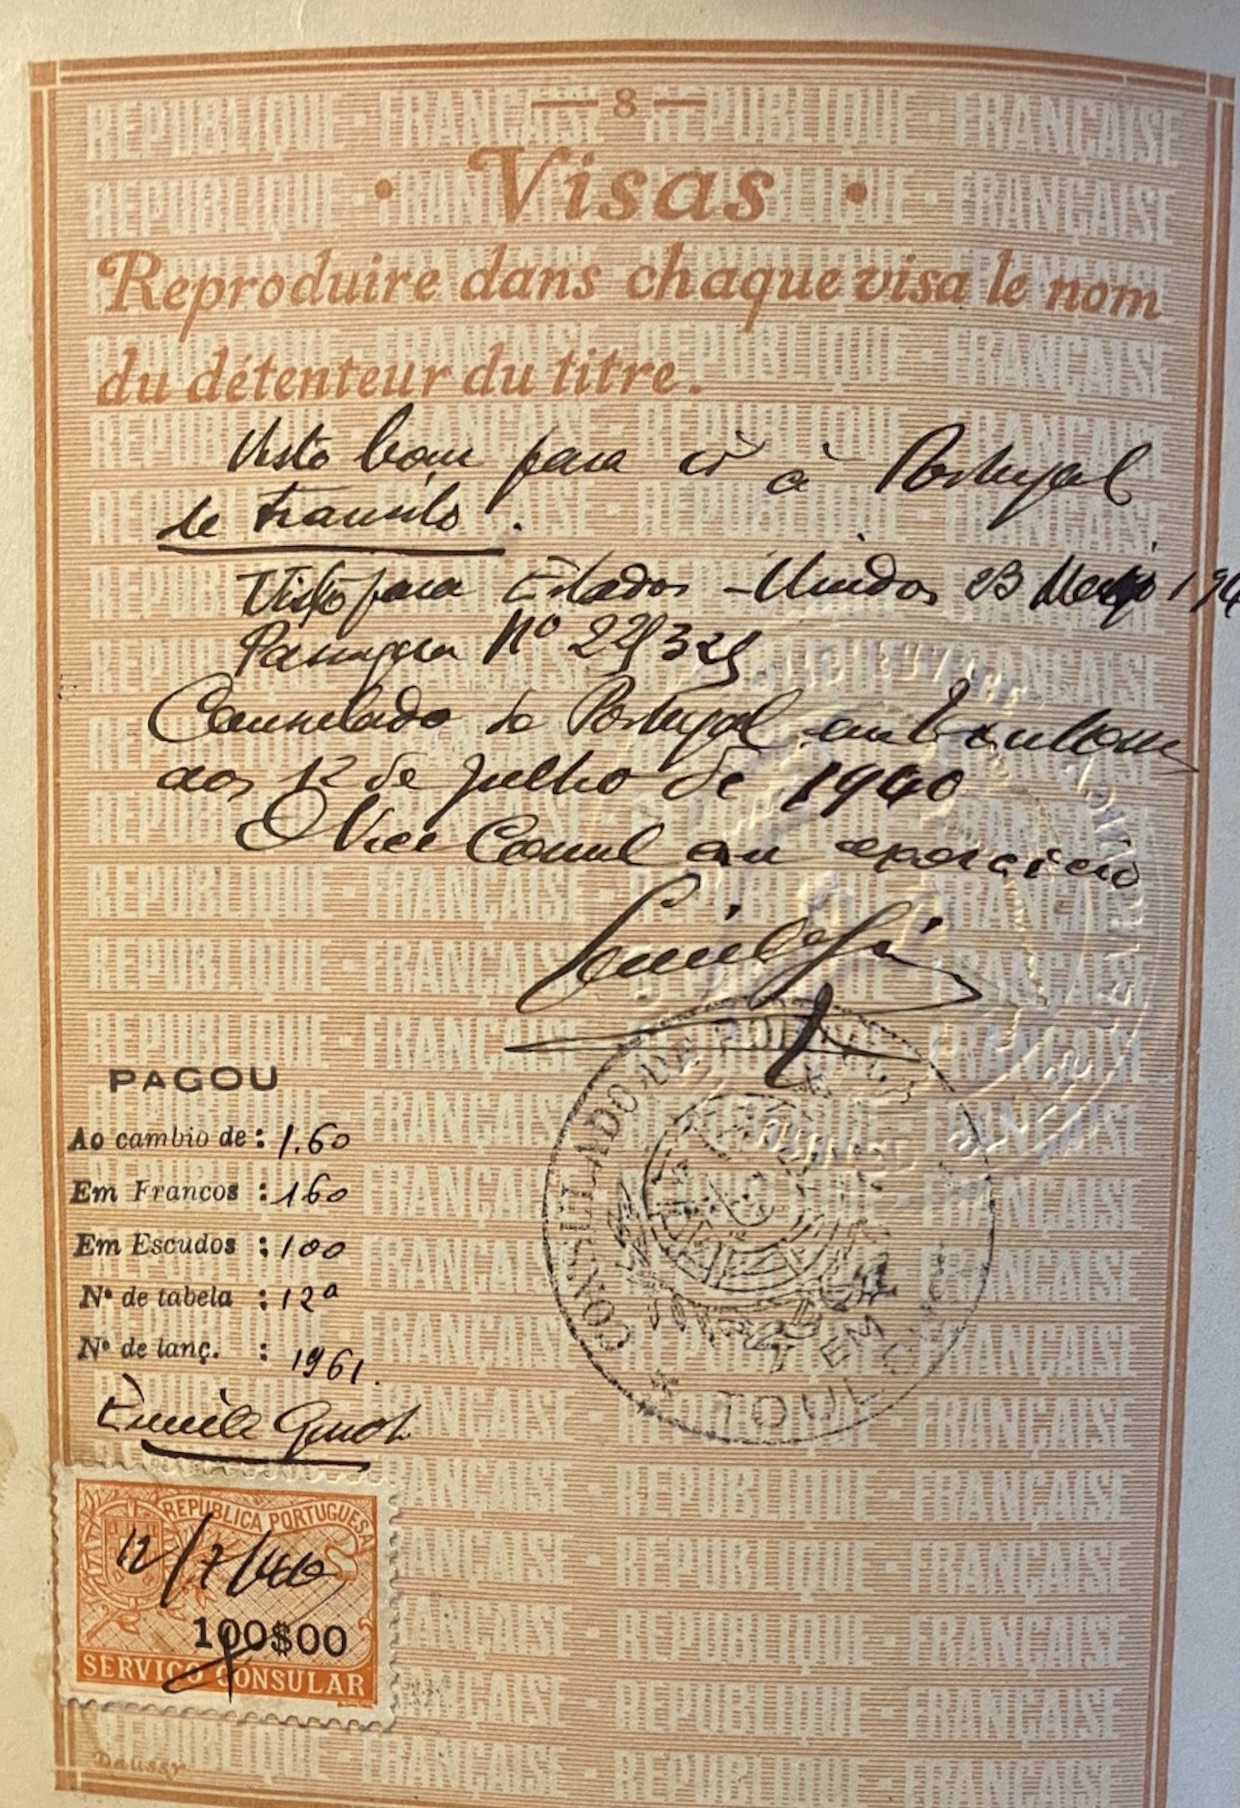 — 8 —
· Visas ·
Reproduire dans chaque visa le nom
du détenteur du titre.
Visto bom para ir à Portugal
de transito.
Visto para Estados-Unidos 23 1940
Nº 225325
Consulado de Portugal em Toulouse
aos 12 de Julho de 1940
O Vice Consul em exercicio
PAGOU
Ao cambio de : 1.60
Em Francos : 160
Em Escudos : 100
Nº de tabela : 12ª
Nº de lanç. : 1961.
Emile
CONSULADO DE EM TOULOUSE
REPUBLICA PORTUGUESA
12/7/40
100$00
SERVIÇO CONSULAR
Daussy
RÉPUBLIQUE · FRANÇAISE · RÉPUBLIQUE · FRANÇAISE